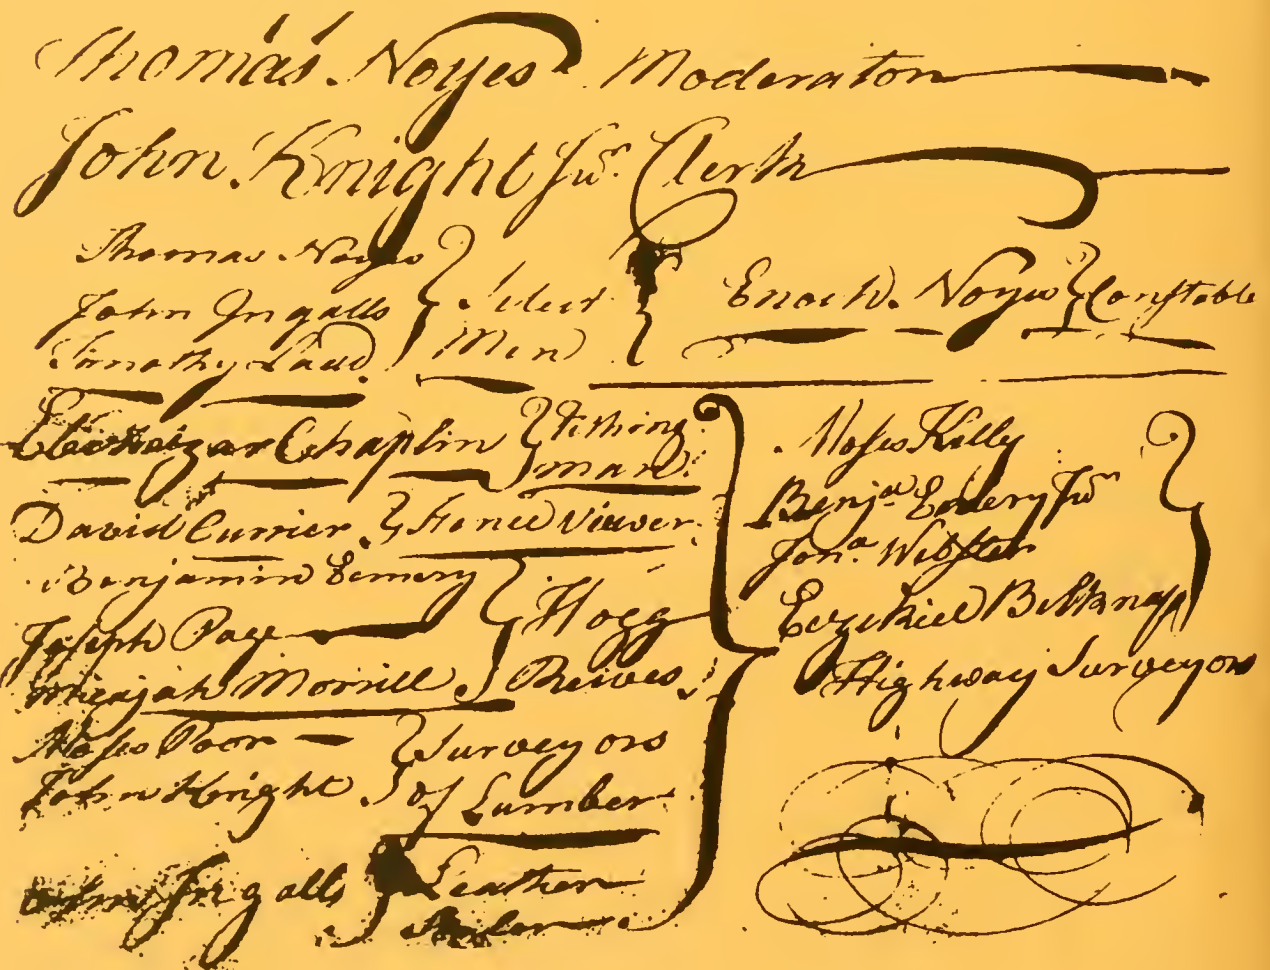 Thomas Noyes Moderator
John Knight Junr. Clerk
Thomas Noyes
John Ingalls
Timothy Ladd
Select
Men
Enoch Noyes Constable
Chaplin
Tithing
man
David Currier Fence Viewer
Benjamin Emery
Joseph Page
Micajah Morrill
Hogg
Reives
Moses Poor
John Knight
Surveyors
of Lumber
John Ingalls
Leather
Sealer
Moses Kelly
Benja Emery Junr
Jona Webster
Ezekiel Belknap
Highway Surveyors